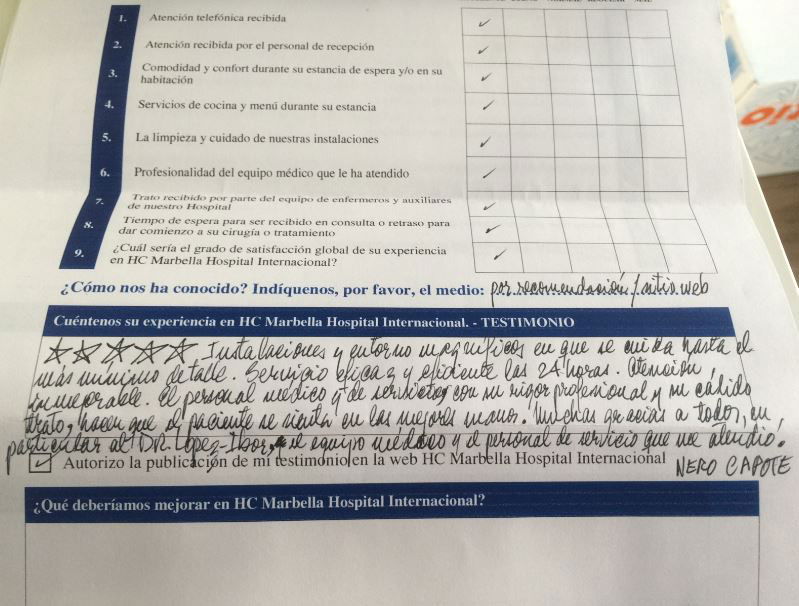 1. Atención telefónica recibida
2. Atención recibida por el personal de recepción
3. Comodidad y confort durante su estancia de espera y/o en su
habitación
4. Servicios de cocina y menú durante su estancia
5. La limpieza y cuidado de nuestras instalaciones
6. Profesionalidad del equipo médico que le ha atendido
7. Trato recibido por parte del equipo de enfermeros y auxiliares
de nuestro Hospital
8. Tiempo de espera para ser recibido en consulta o retraso para
dar comienzo a su cirugía o tratamiento
9. ¿Cuál sería el grado de satisfacción global de su experiencia
en HC Marbella Hospital Internacional?
¿Cómo nos ha conocido? Indíquenos, por favor, el medio: por recomendación / sitio web
Cuéntenos su experiencia en HC Marbella Hospital Internacional. - TESTIMONIO
Instalaciones y entorno magníficos en que se cuida hasta el
más mínimo detalle. Servicio eficaz y eficiente las 24 horas. Atención
inmejorable. El personal médico y de servicios con su rigor profesional y su cálido
trato, hacen que el paciente se sienta en las mejores manos. Muchas gracias a todos, en
particular al DR. López-Ibor, equipo médico y el personal de servicio que me atendió.
Autorizo la publicación de mi testimonio en la web HC Marbella Hospital Internacional NERO CAPOTE
¿Qué deberíamos mejorar en HC Marbella Hospital Internacional?